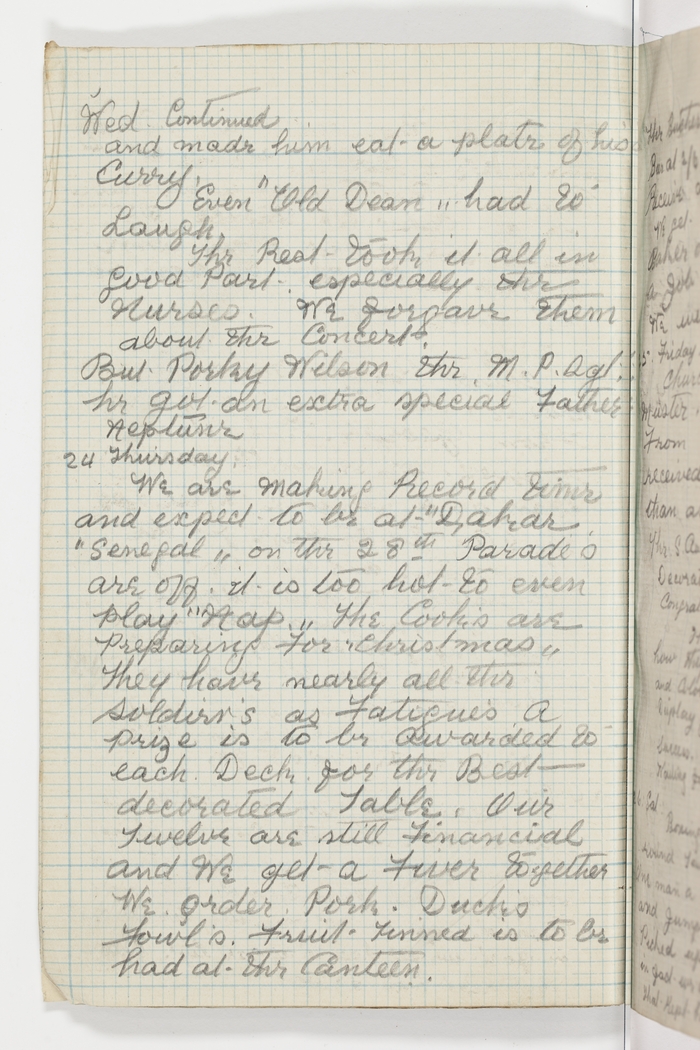 Wed. Continued
and made him eat a plate of his
Curry.
Even "Old Dean" had to
Laugh.
The Rest took it all in
good Part. especially the
Nurses. We forgave them
about the Concert.
But Porky Wilson the M.P. Sgt.
he got an extra special Father
Neptune
24 Thursday.
We are making Record time
and expect to be at "Dakar
"Senegal" on the 28th Parade's
are off. it is too hot to even
play "Nap." The Cooks are
Preparing For "Christmas"
They have nearly all the
Soldier's as Fatigues A
prize is to be Awarded to
each Deck for the Best
decorated Table. Our
Twelve are still Financial
and We get a Fiver together
We order Pork. Ducks
Fowl's. Fruit Tinned is to be
had at the Canteen.